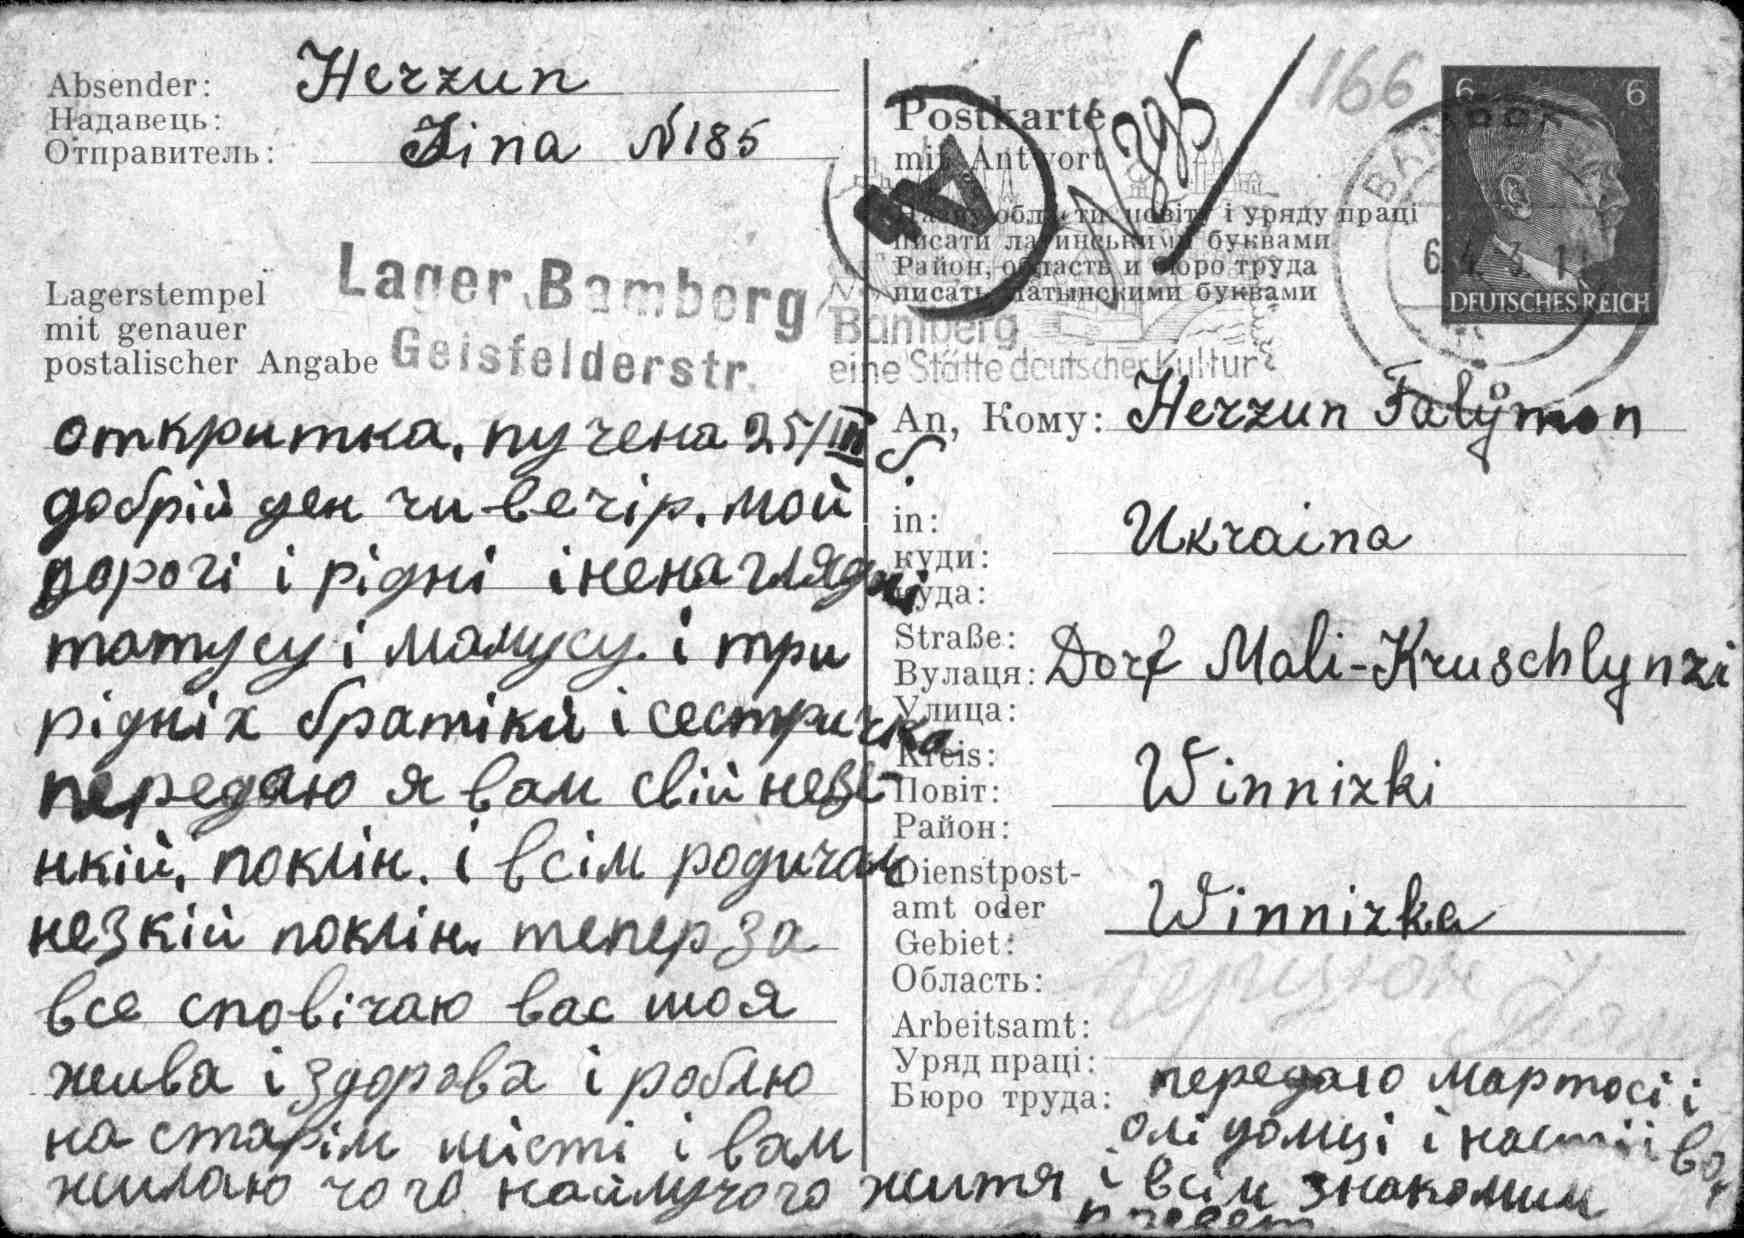 Absender: Herzun
Надавець:
Отправитель: Zina N185
Lagerstempel
mit genauer
postalischer Angabe
Lager Bamberg
Geisfelderstr.
откритка, пучена 25/III
добрій ден чи-вечір. мой
дорогі і рідні і ненаглядні
татусу і мамусу. і три
рідніх братікй і сестричка
передаю я вам свій незе-
нкій, поклін. і всім родичам
незкій поклін. тепер за
все сповічаю вас шо я
жива і здорова і роблю
на старім місті і вам
жилаю чого наймучого життя і всім знакомим
привет
Postkarte
mit Antwort
N 395
166
Ab
Назву области, повіту і уряду праці
писати латинськими буквами
Район, область и бюро труда
писать латынскими буквами
6 6
DEUTSCHES REICH
BAMBERG
Bamberg
eine Stätte deutscher Kultur
An, Кому: Herzun Falymon
in: Ukraina
куди:
куда:
Straße:
Вулаця: Dorf Mali-Kruschlynzi
Улица:
Kreis:
Повіт: Winnizki
Район:
Dienstpost-
amt oder Winnizka
Gebiet:
Область:
Arbeitsamt:
Уряд праці:
Бюро труда:
передаю Мартосі і
олі домці і настії